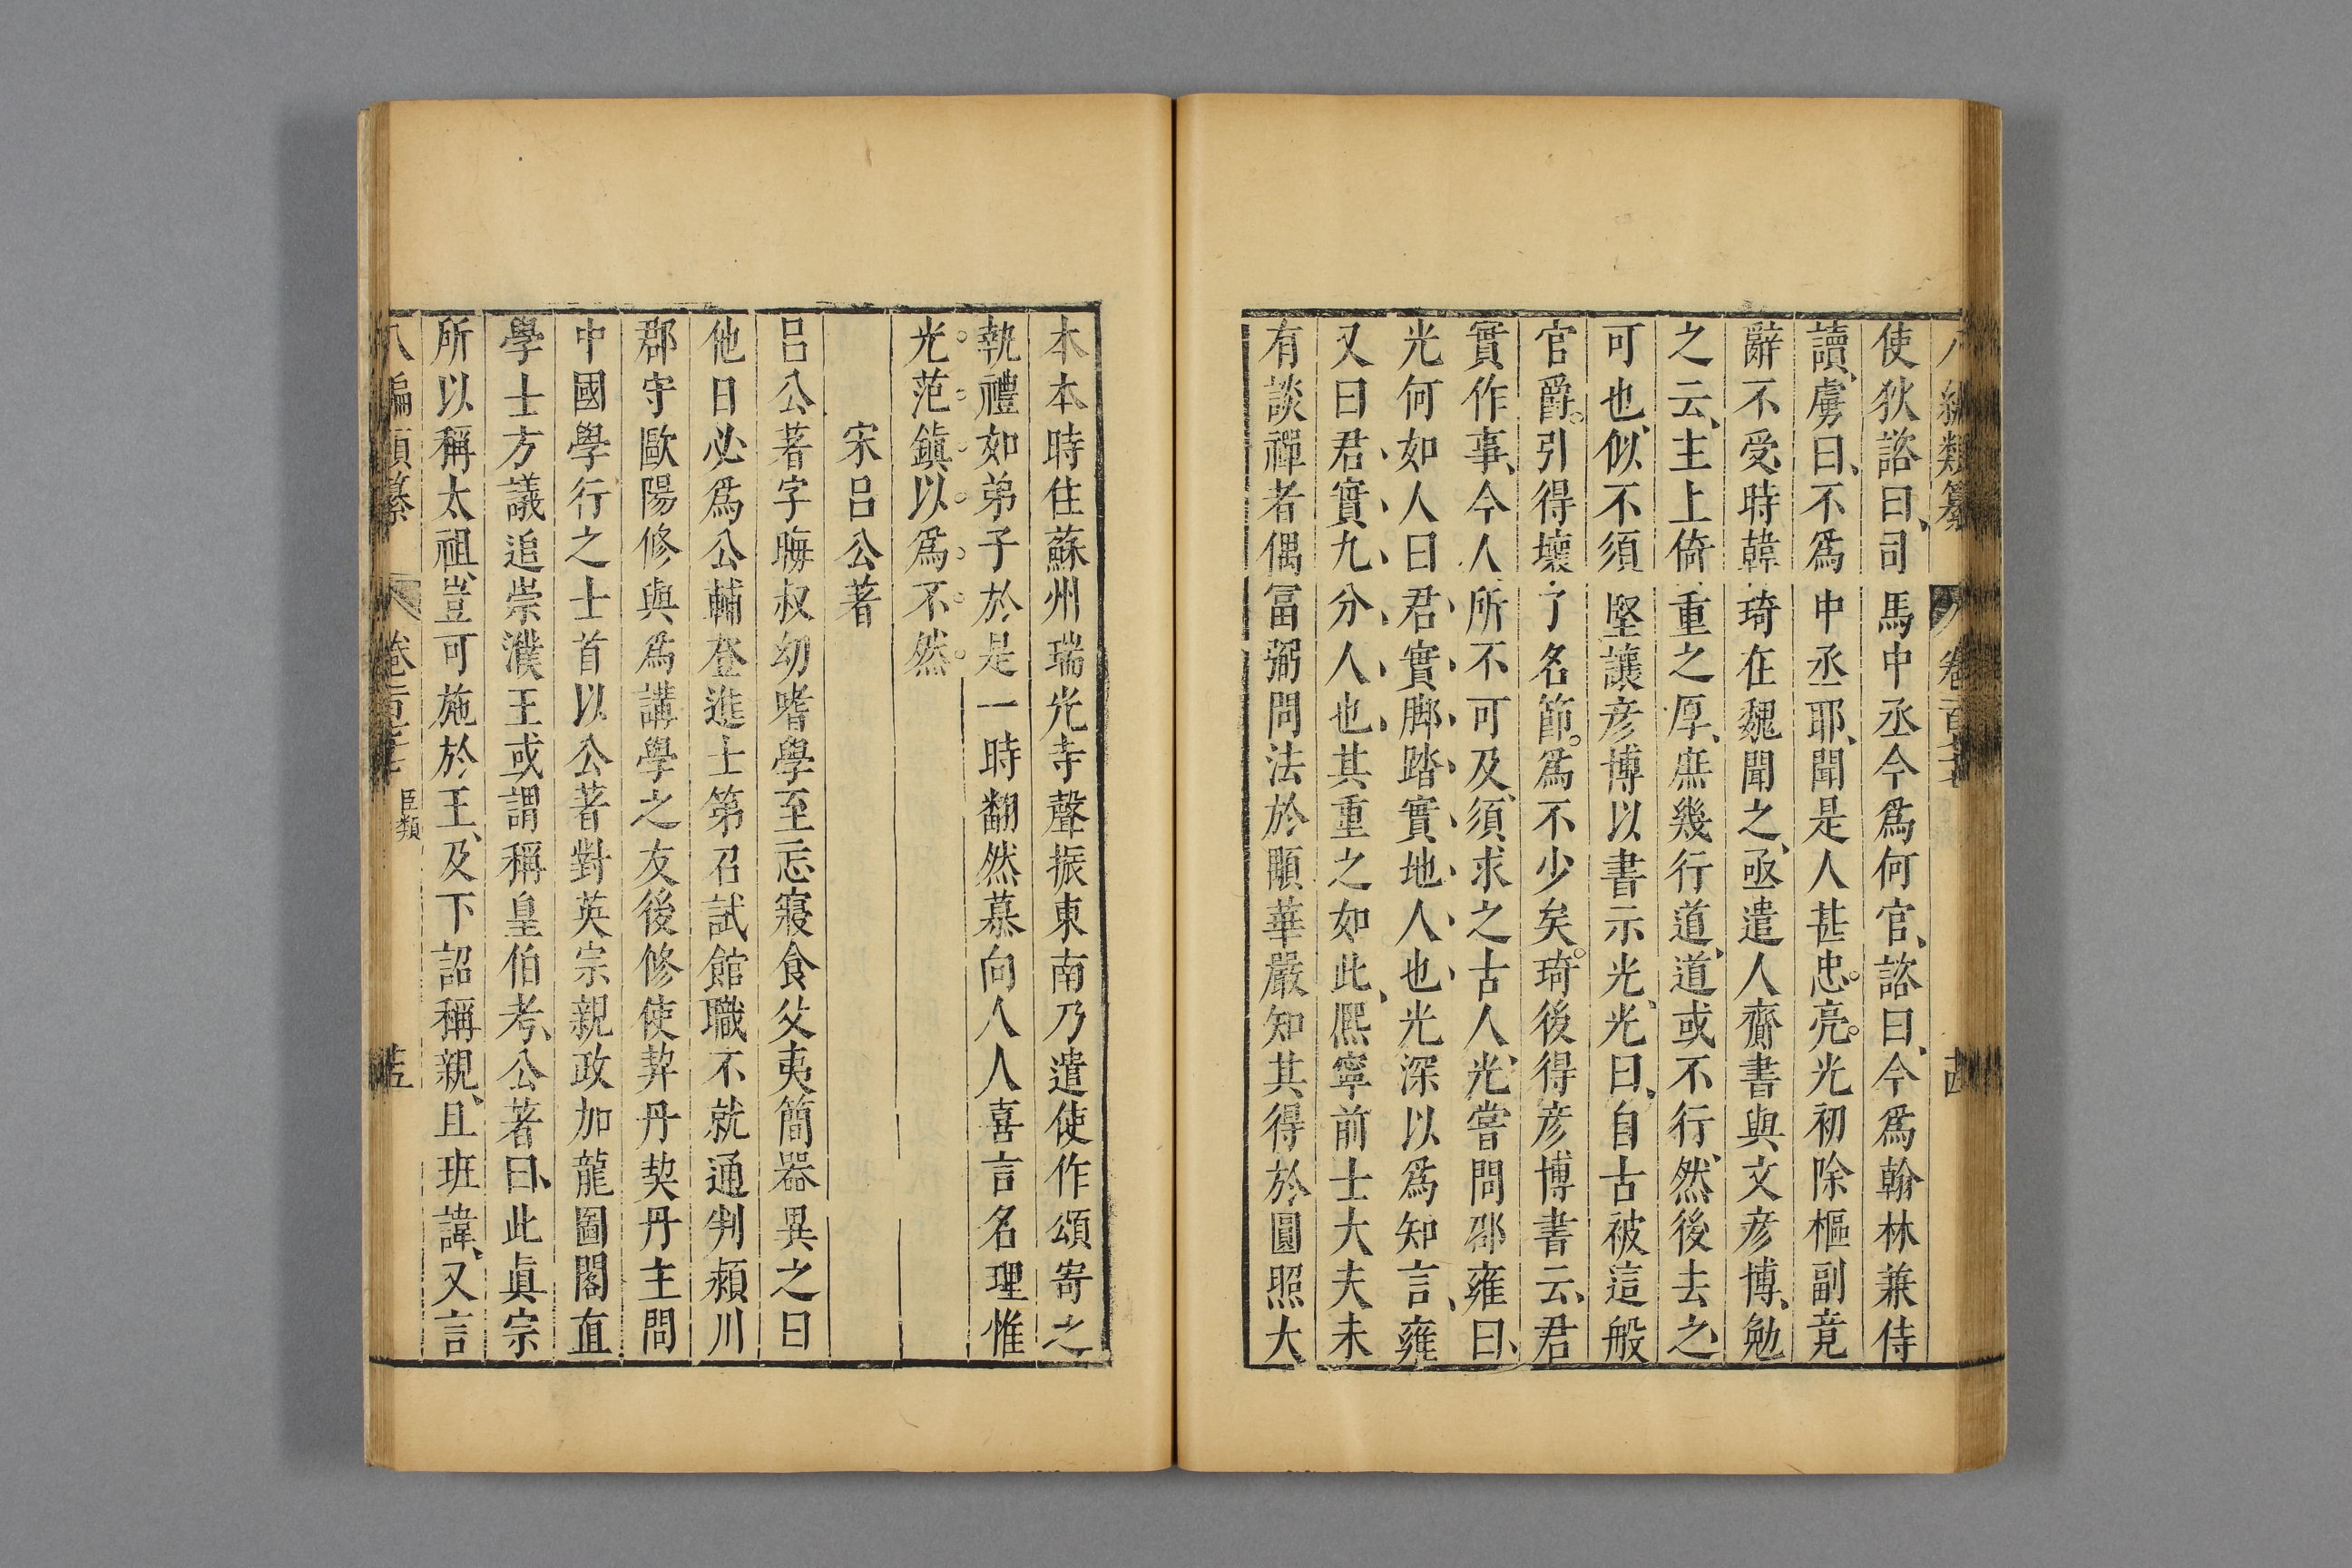 八編類纂 卷二百
使狄諮曰司馬中丞今爲何官諮曰今爲翰林兼侍
讀虜曰不爲中丞耶聞是人甚忠亮光初除樞副竟
辭不受時韓琦在魏聞之亟遣人齎書與文彥博勉
之云主上倚重之厚庶幾行道道或不行然後去之
可也似不須堅讓彥博以書示光光曰自古被這般
官爵引得壞了名節爲不少矣琦後得彥博書云君
實作事今人所不可及須求之古人光嘗問邵雍曰
光何如人曰君實脚踏實地人也光深以爲知言雍
又曰君實九分人也其重之如此熈寧前士大夫未
有談禪者偶富弼問法於顒華嚴知其得於圓照大
本本時住蘇州瑞光寺聲振東南乃遣使作頌寄之
執禮如弟子於是一時翻然慕向人人喜言名理惟
光范鎭以爲不然
宋呂公著
呂公著字晦叔幼嗜學至忘寢食父夷簡器異之曰
他日必爲公輔登進士第召試館職不就通判潁川
郡守歐陽修與爲講學之友後修使契丹契丹主問
中國學行之士首以公著對英宗親政加龍圖閣直
學士方議追崇濮王或謂稱皇伯考公著曰此眞宗
所以稱太祖豈可施於王及下詔稱親且班諱又言
八編類纂 卷 臣類